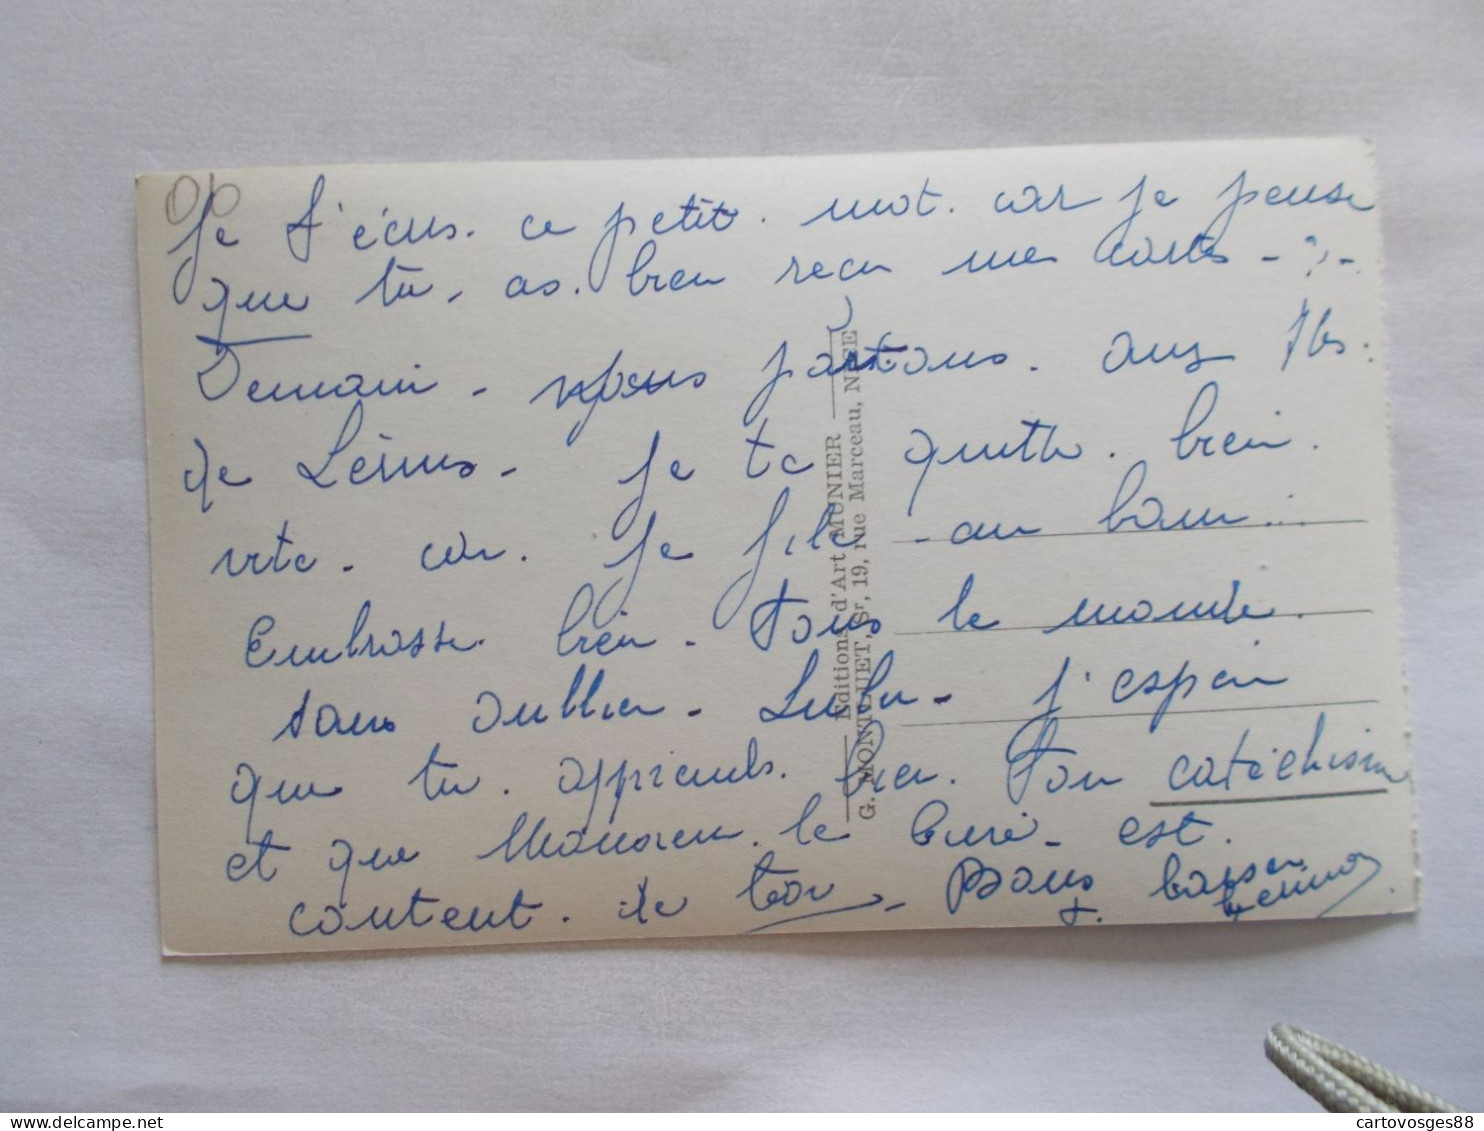 Je t'écris. ce petit. mot. car je pense
que tu, as. bien reçu mes cartes - ? -
Demain - nous partons. aux Iles.
de Lérins - Je te quitte. bien.
vite. car. Je file - au bain...
Embrasse. bien - Tous le monde.
sans oublier - Lulu - j'espère
que tu. apprends. bien. Ton catéchisme
et que Monsieur. le Curé - est.
content. de toi - Bons baisers
Editions d'Art MUNIER
G. MONTLUET, Sr, 19, rue Marceau, NICE
cartovosges88